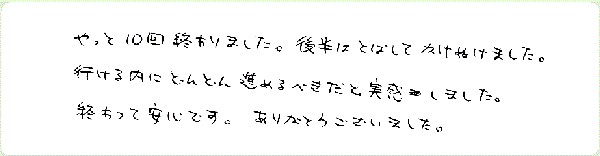 やっと10回終わりました。後半はとばしてかけぬけました。
行ける内にどんどん進めるべきだと実感しました。
終わって安心です。ありがとうございました。